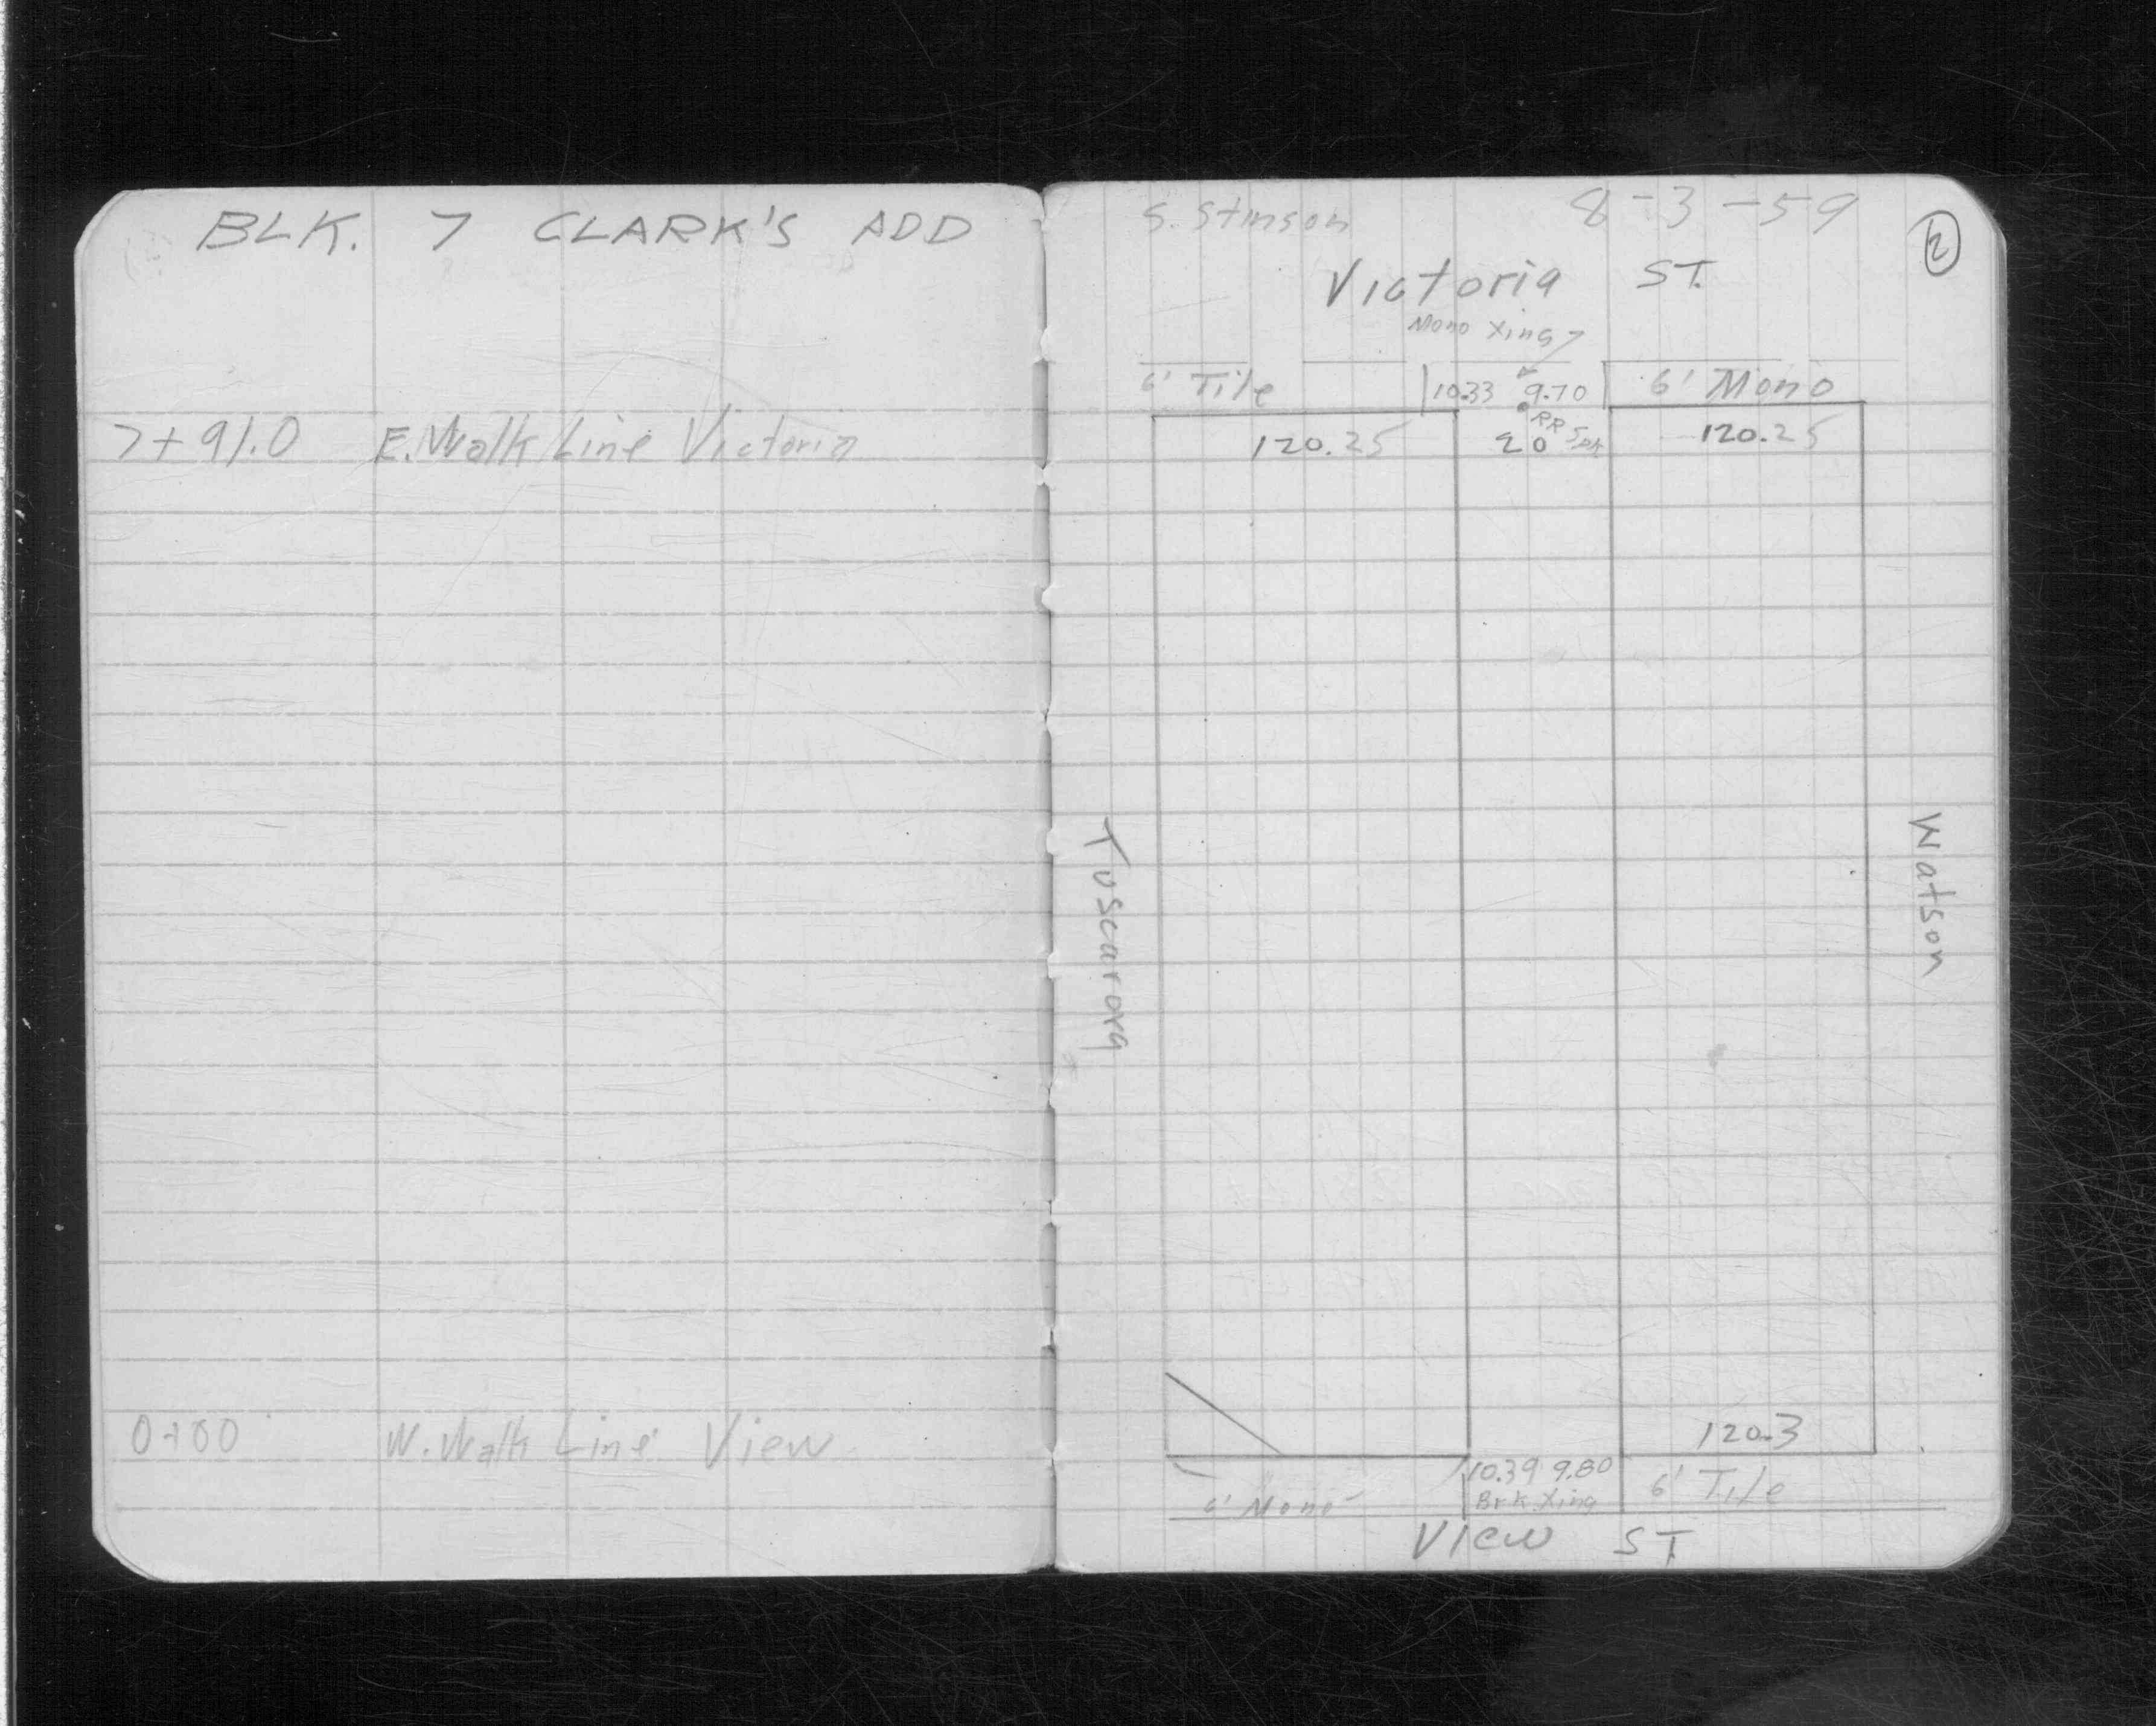 BLK. 7 CLARK'S ADD
7+91.0 E. Walk Line Victoria
0+00 W. Walk Line View
S. Stinson 8-3-59
2
Victoria ST.
Mono Xing
6' Tile 10.33 9.70 6' Mono
RR Spk
120.25 20 120.25
Tuscarora
Watson
120.3
10.39 9.80 6' Tile
6' Mono Brk Xing
View ST